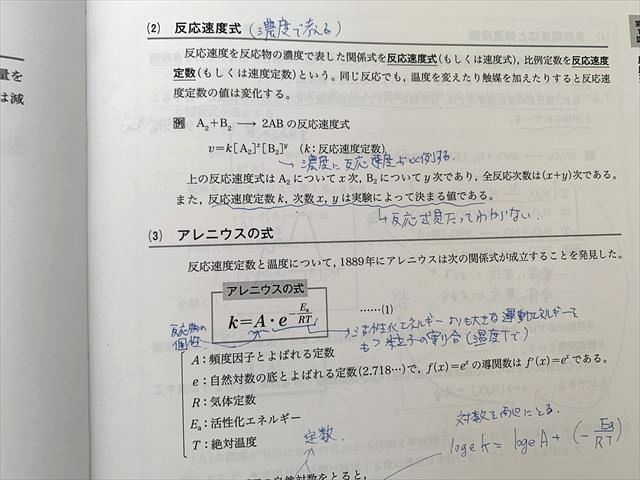 量を
は減
(2) 反応速度式 (濃度で考える)
反応速度を反応物の濃度で表した関係式を反応速度式(もしくは速度式), 比例定数を反応速度
定数(もしくは速度定数)という。同じ反応でも, 温度を変えたり触媒を加えたりすると反応速
度定数の値は変化する。
例 A₂+B₂ → 2ABの反応速度式
v=k[A₂]ˣ[B₂]ʸ (k:反応速度定数)
濃度に反応速度が比例する.
上の反応速度式はA₂についてx次, B₂についてy次であり, 全反応次数は(x+y)次である。
また, 反応速度定数k, 次数x, yは実験によって決まる値である。
反応式見たってわかんない.
(3) アレニウスの式
反応速度定数と温度について, 1889年にアレニウスは次の関係式が成立することを発見した。
アレニウスの式
k=A・e^{-Ea/RT} ……(1)
反応物の
個性
活性化エネルギーよりも大きな運動エネルギーを
もつ粒子の割合(温度Tで)
A:頻度因子とよばれる定数
e:自然対数の底とよばれる定数(2.718…)で, f(x)=eˣの導関数はf′(x)=eˣである。
R:気体定数
Eₐ:活性化エネルギー
T:絶対温度
対数を両辺にとる.
loge k = loge A + (-Ea/RT)
定数.
の自然対数をとると,